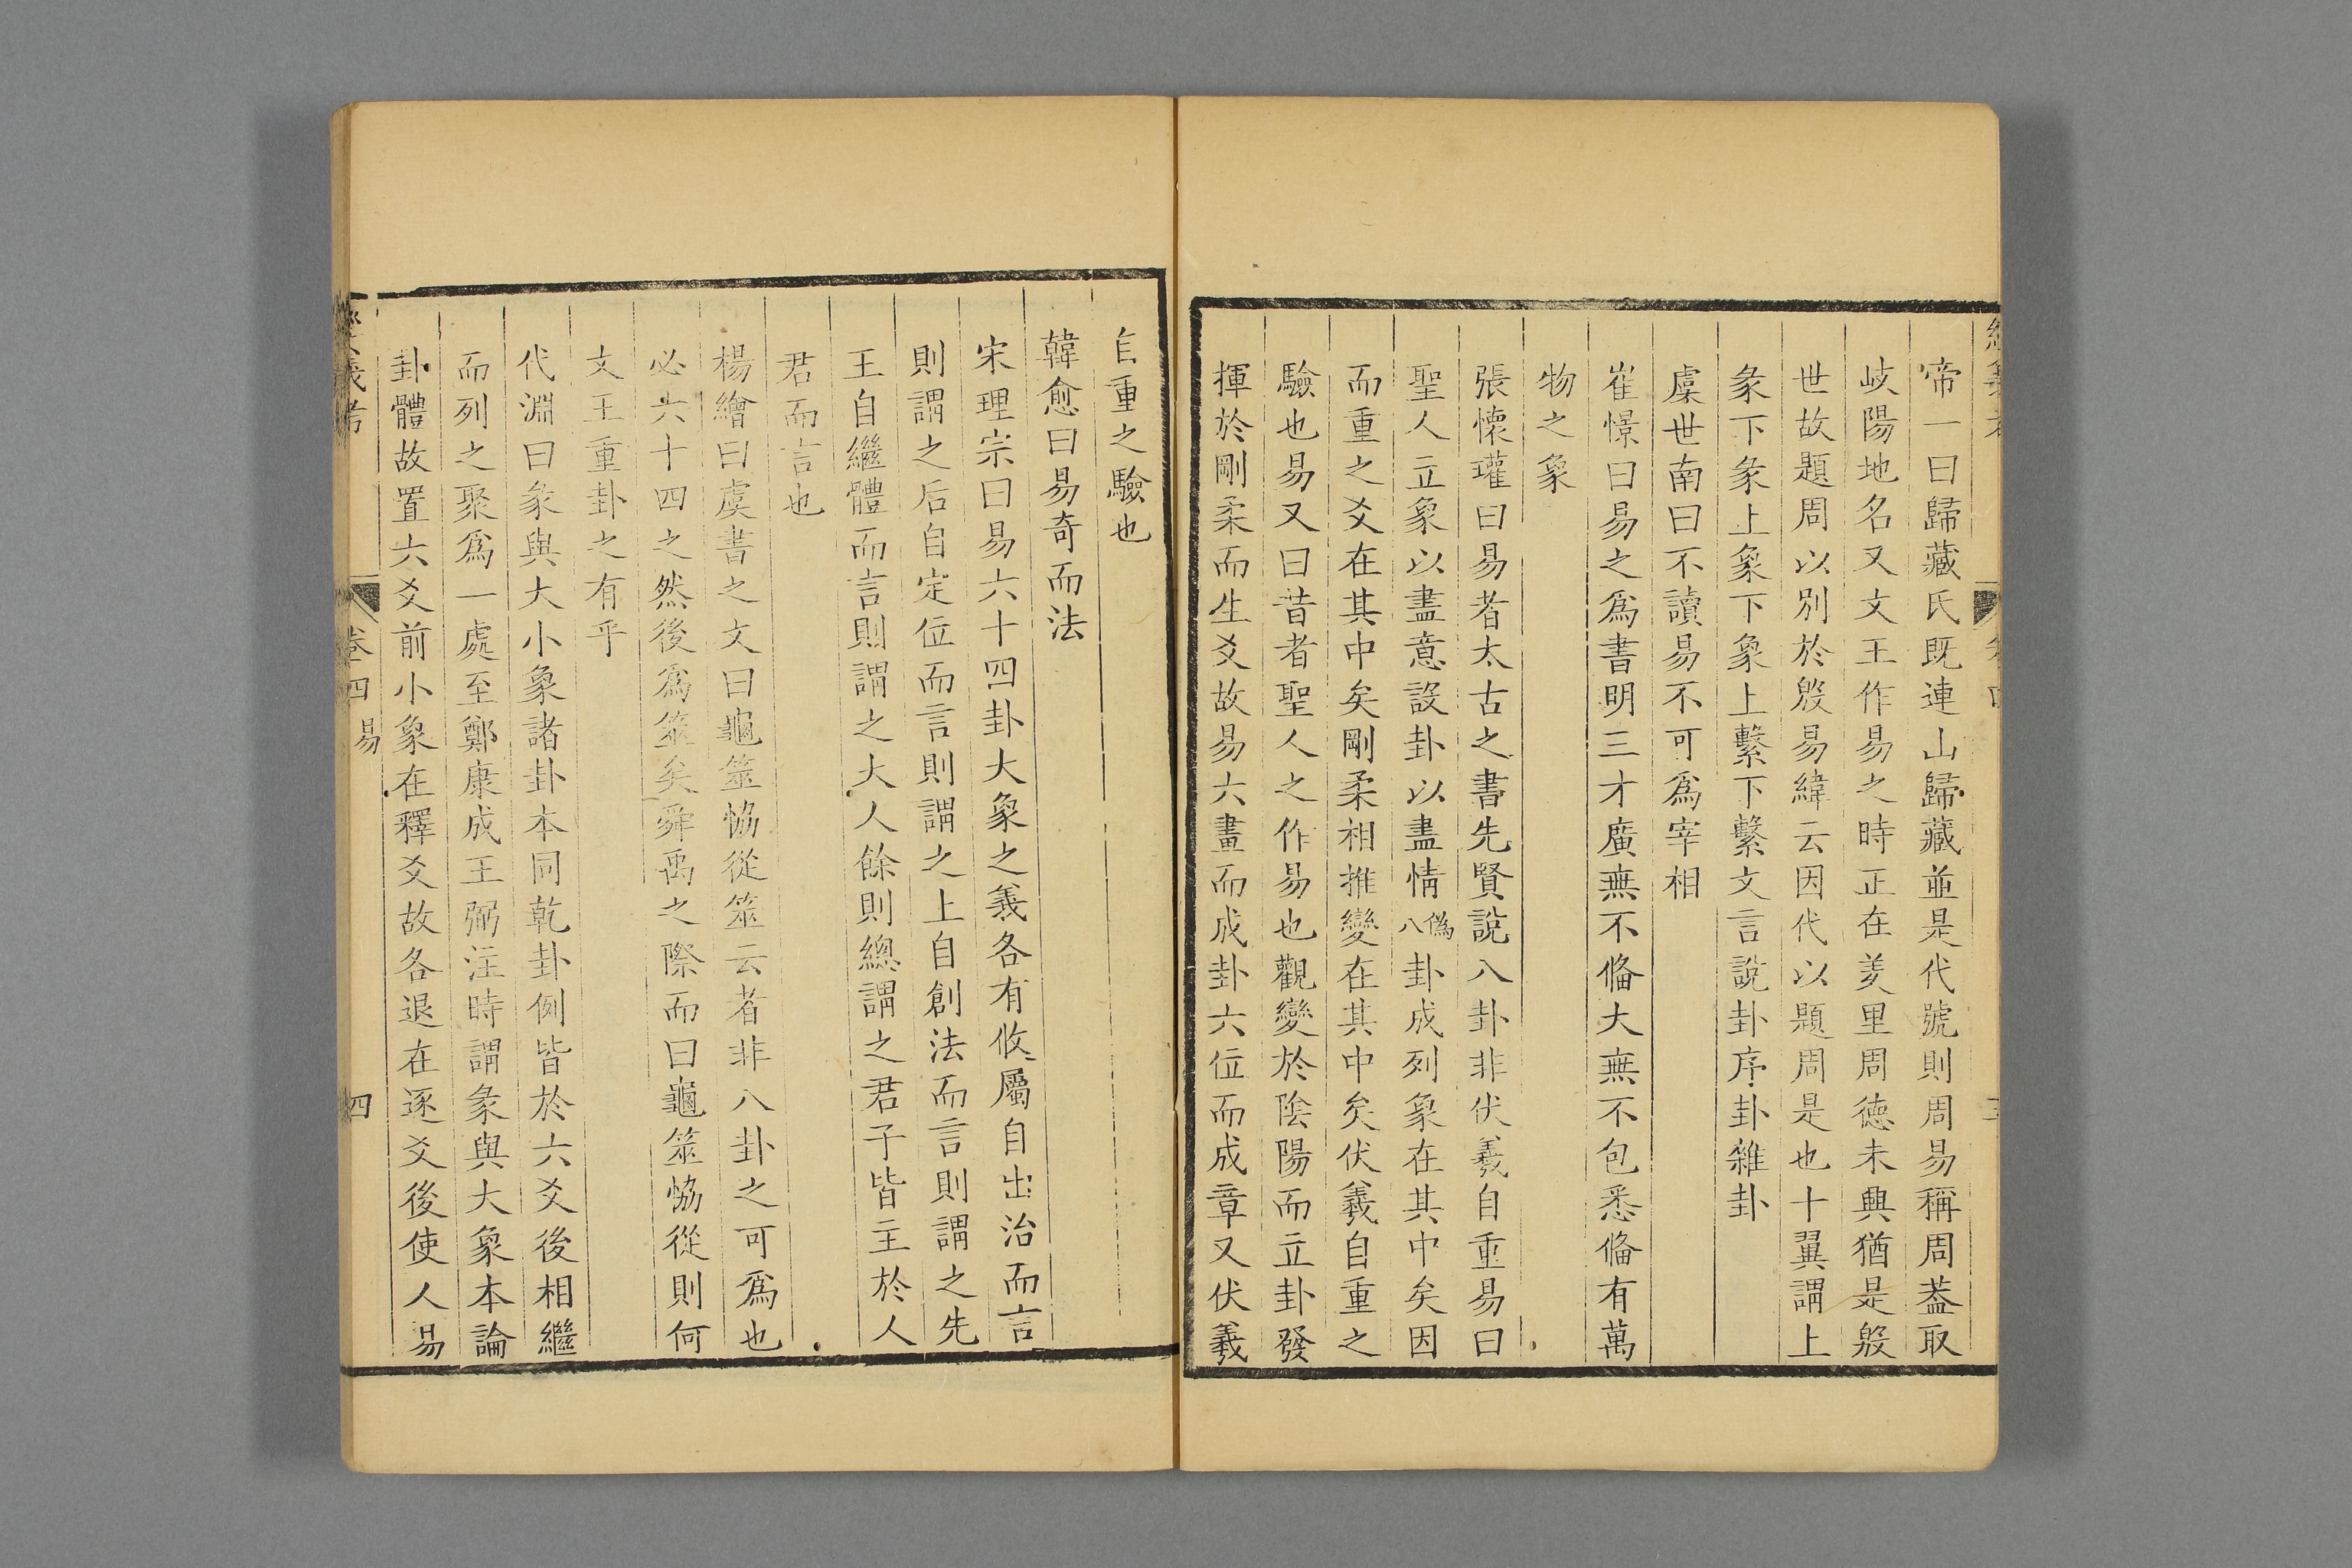 帝一曰歸藏氏既連山歸藏並是代號則周易稱周葢取
岐陽地名又文王作易之時正在羑里周德未興猶是殷
世故題周以別於殷易緯云因代以題周是也十翼謂上
彖下彖上象下象上繫下繫文言說卦序卦雜卦
虞世南曰不讀易不可爲宰相
崔憬曰易之爲書明三才廣無不俻大無不包悉俻有萬
物之象
張懷瓘曰易者太古之書先賢說八卦非伏羲自重易曰
聖人立象以盡意設卦以盡情僞八卦成列象在其中矣因
而重之爻在其中矣剛柔相推變在其中矣伏羲自重之
驗也易又曰昔者聖人之作易也觀變於陰陽而立卦發
揮於剛柔而生爻故易六畫而成卦六位而成章又伏羲
自重之驗也
韓愈曰易奇而法
宋理宗曰易六十四卦大象之義各有攸屬自出治而言
則謂之后自定位而言則謂之上自創法而言則謂之先
王自繼體而言則謂之大人餘則總謂之君子皆主於人
君而言也
楊繪曰虞書之文曰龜筮恊從筮云者非八卦之可爲也
必六十四之然後爲筮矣舜禹之際而曰龜筮恊從則何
文王重卦之有乎
代淵曰彖與大小象諸卦本同乾卦例皆於六爻後相繼
而列之聚爲一處至鄭康成王弼注時謂彖與大象本論
卦體故置六爻前小象在釋爻故各退在逐爻後使人易
卷四 易
四